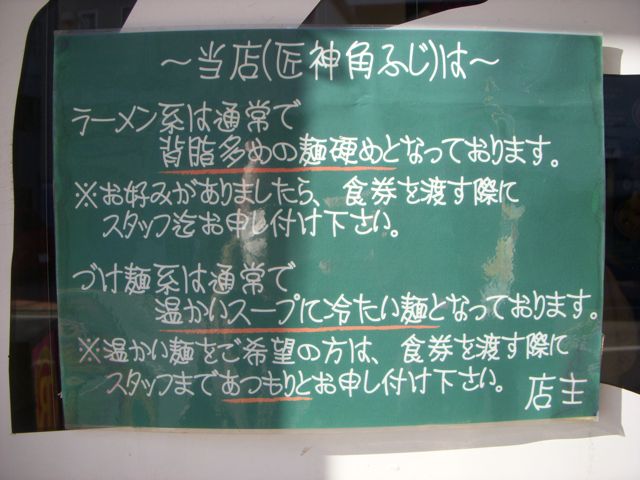 ～当店(匠神角ふじ)は～
ラーメン系は通常で
背脂多めの麺硬めとなっております。
※お好みがありましたら、食券を渡す際に
スタッフ迄お申し付け下さい。
づけ麺系は通常で
温かいスープに冷たい麺となっております。
※温かい麺をご希望の方は、食券を渡す際に
スタッフまであつもりとお申し付け下さい。
店主